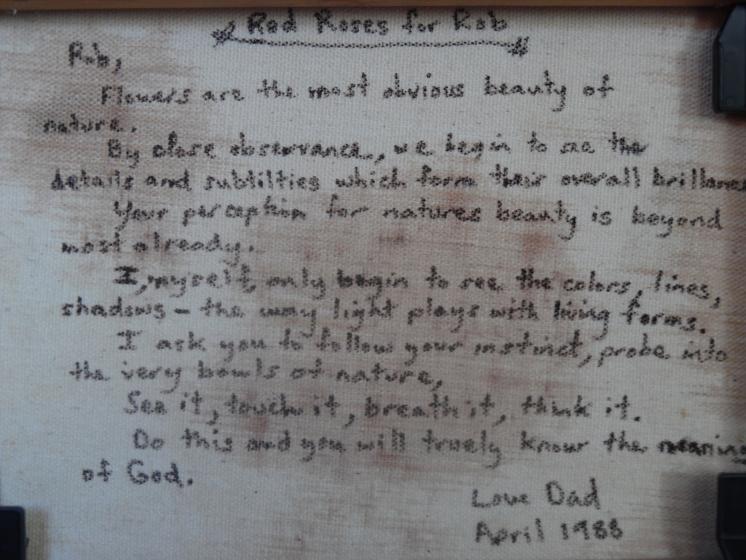 Red Roses for Rob
Rob,
Flowers are the most obvious beauty of
nature.
By close observance, we begin to see the
details and subtilties which form their overall brillance
Your perception for natures beauty is beyond
most already.
I, myself, only begin to see the colors, lines,
shadows – the way light plays with living forms.
I ask you to follow your instinct, probe into
the very bowls of nature,
See it, touch it, breath it, think it.
Do this and you will truely know the meaning
of God.
Love Dad
April 1988